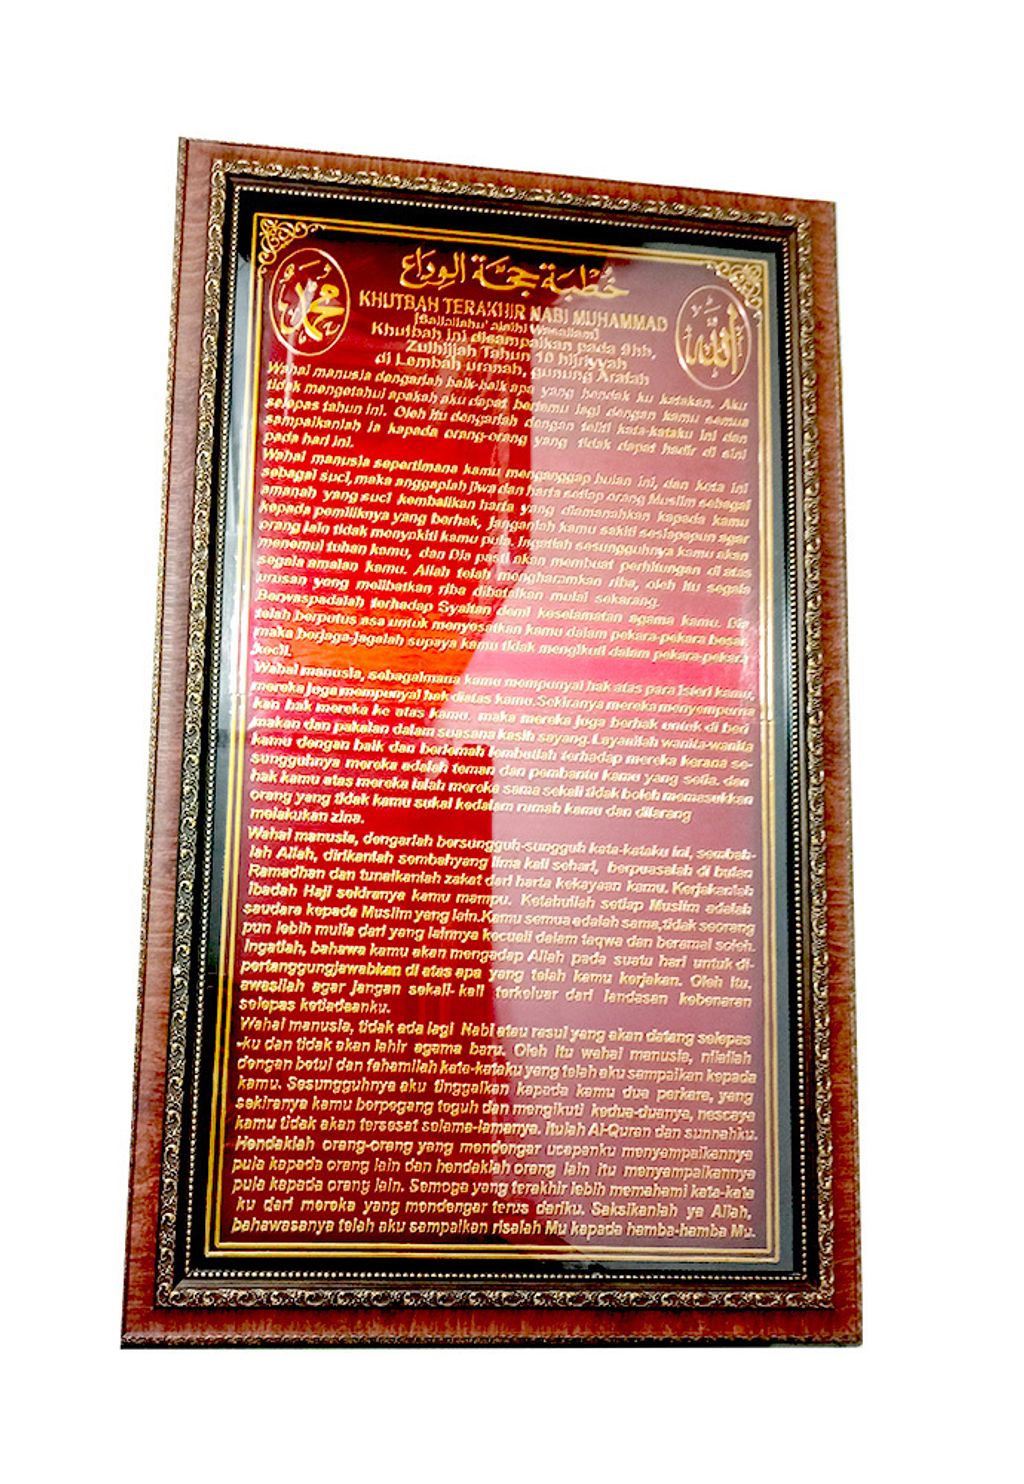 خطبة حجة الوداع
محمد
الله
KHUTBAH TERAKHIR NABI MUHAMMAD
[Sallallahu' alaihi Wasallam]
Khutbah ini disampaikan pada 9hb,
Zulhijjah Tahun 10 hijriyyah
di Lembah uranah, gunung Arafah
Wahai manusia dengarlah baik-baik apa yang hendak ku katakan. Aku
tidak mengetahui apakah aku dapat bertemu lagi dengan kamu semua
selepas tahun ini. Oleh itu dengarlah dengan teliti kata-kataku ini dan
sampaikanlah ia kepada orang-orang yang tidak dapat hadir di sini
pada hari ini.
Wahai manusia sepertimana kamu menganggap bulan ini, dan kota ini
sebagai suci, maka anggaplah jiwa dan harta setiap orang Muslim sebagai
amanah yang suci kembalikan harta yang diamanahkan kepada kamu
kepada pemiliknya yang berhak, janganlah kamu sakiti sesiapapun agar
orang lain tidak menyakiti kamu pula. Ingatlah sesungguhnya kamu akan
menemui tuhan kamu, dan Dia pasti akan membuat perhitungan di atas
segala amalan kamu. Allah telah mengharamkan riba, oleh itu segala
urusan yong melibatkan riba dibatalkan mulai sekarang.
Berwaspadalah terhadap Syaitan demi keselamatan agama kamu. Dia
telah berputus asa untuk menyesatkan kamu dalam pekara-pekara besar,
maka berjaga-jagalah supaya kamu tidak mengikuti dalam pekara-pekara
kecil.
Wahai manusia, sebagaimana kamu mempunyai hak atas para isteri kamu,
mereka juga mempunyai hak diatas kamu. Sekiranya mereka menyempurna
kan hak mereka ke atas kamu. maka mereka juga berhak untuk di beri
makan dan pakaian dalam suasana kasih sayang. Layanilah wanita-wanita
kamu dengan baik dan berlemah lembutlah terhadap mereka kerana se-
sungguhnya mereka adalah teman dan pembantu kamu yang setia. dan
hak kamu atas mereka ialah mereka sama sekali tidak boleh memasukkan
orang yang tidak kamu sukai kedalam rumah kamu dan dilarang
melakukan zina.
Wahai manusia, dengarlah bersungguh-sungguh kata-kataku ini, sembah-
lah Allah, dirikanlah sembahyang lima kali sehari, berpuasalah di bulan
Ramadhan dan tunaikanlah zakat dari harta kekayaan kamu. Kerjakanlah
ibadah Haji sekiranya kamu mampu. Ketahuilah setiap Muslim adalah
saudara kepada Muslim yang lain.Kamu semua adalah sama,tidak seorang
pun lebih mulia dari yang lainnya kecuali dalam taqwa dan beramal soleh.
Ingatlah, bahawa kamu akan mengadap Allah pada suatu hari untuk di-
pertanggungjawabkan di atas apa yang telah kamu kerjakan. Oleh itu.
awasilah agar jangan sekali-kali terkeluar dari landasan kebenaran
selepas ketiadaanku.
Wahai manusia, tidak ada lagi Nabi atau rasul yang akan datang selepas
-ku dan tidak akan lahir agama baru. Oleh itu wahai manusia, nilailah
dengan betul dan fahamilah kata-kataku yang telah aku sampaikan kepada
kamu. Sesungguhnya aku tinggalkan kapada kamu dua perkara, yang
sekiranya kamu berpegang teguh dan mengikuti kedua-duanya, nescaya
kamu tidak akan tersesat selama-lamanya. Itulah Al-Quran dan sunnahku.
Hendaklah orang-orang yang mendengar ucapanku menyampaikannya
pula kapada orang lain dan hendaklah orang lain itu menyampaikannya
pula kapada orang lain. Semoga yang terakhir lebih memahami kata-kata
ku dari mereka yang mendengar terus dariku. Saksikanlah ya Allah,
bahawasanya telah aku sampaikan risalah Mu kapada hamba-hamba Mu.